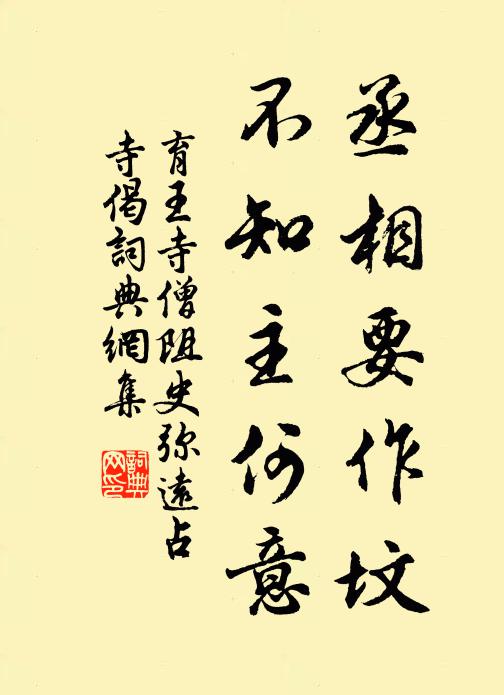 丞相要作坟
不知主何意
育王寺僧阻史弥遠占
寺偈詞典網集
詞典
网印